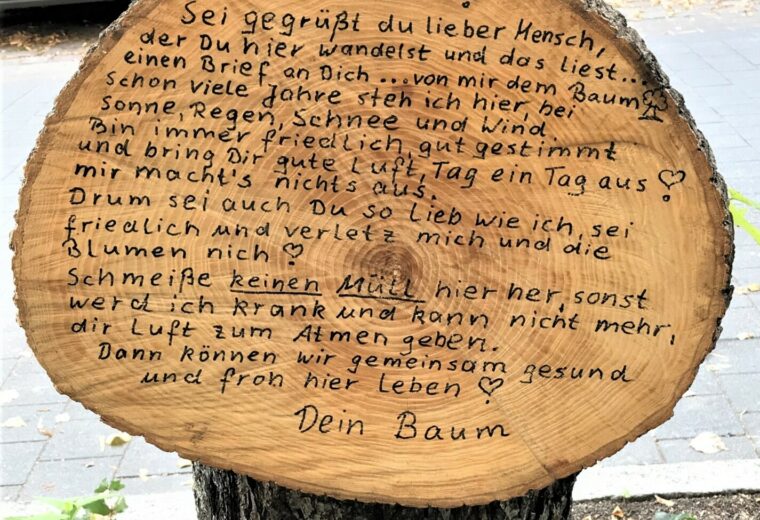 Sei gegrüßt du lieber Mensch,
der Du hier wandelst und das liest...
einen Brief an Dich ... von mir dem Baum
schon viele Jahre steh ich hier, bei
Sonne, Regen, Schnee und Wind
Bin immer friedlich, gut gestimmt
und bring Dir gute Luft, Tag ein Tag aus
mir macht's nichts aus.
Drum sei auch Du so Lieb wie ich, sei
friedlich und verletz mich und die
Blumen nich
Schmeiße keinen Müll hier her, sonst
werd ich krank und kann nicht mehr,
dir Luft zum Atmen geben.
Dann können wir gemeinsam gesund
und froh hier Leben
Dein Baum